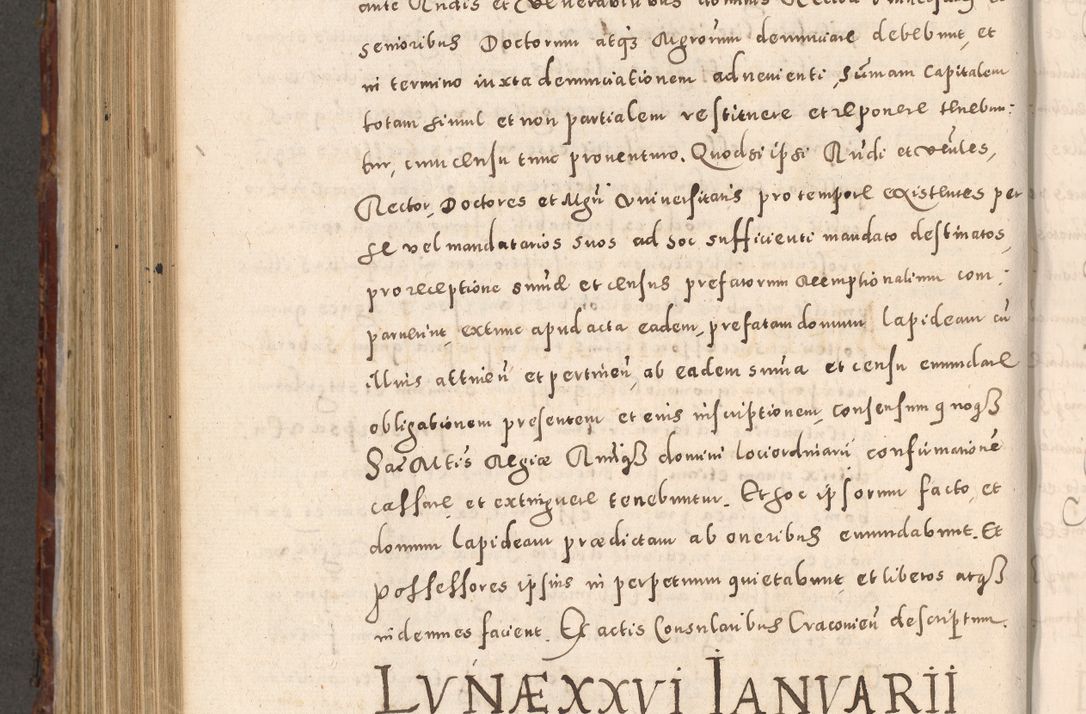 senioribus Doctorum atqꝫ Mgrorum denunciare debebunt, et
in termino iuxta denunciationem advenienti, Summam Capitalem
totam simul et non partialem restituere et reponere tenebun:
tur, cum censu tunc proventuro. Quodsi ipsi Rndi et veñles,
Rector, Doctores et Mgri Universitatis pro tempore existentes per
se vel mandatarios suos ad hoc sufficienti mandato destinatos,
pro receptione summæ et census prefatorum reemptionalium com:
paruerint, extunc apud acta eadem, prefatam domum lapideam cũ
illius attineñ et pertineñ, ab eadem summa et censu emundare
obligationem presentem et eius inscriptionem, consensum qnoqꝫ
Sac Mtis Regiæ Rndiqꝫ domini loci ordinarii confirmationẽ
cassare et extinguere tenebuntur. Et hoc ipsorum facto, et
domum lapideam prædictam ab oneribus emundabunt. Et
possessores ipsius in perpetuum quietabunt et liberos atqꝫ
indemnes facient. Ex actis Consularibus Cracovieñ descriptum.
LVNÆ XXVI IANVARII